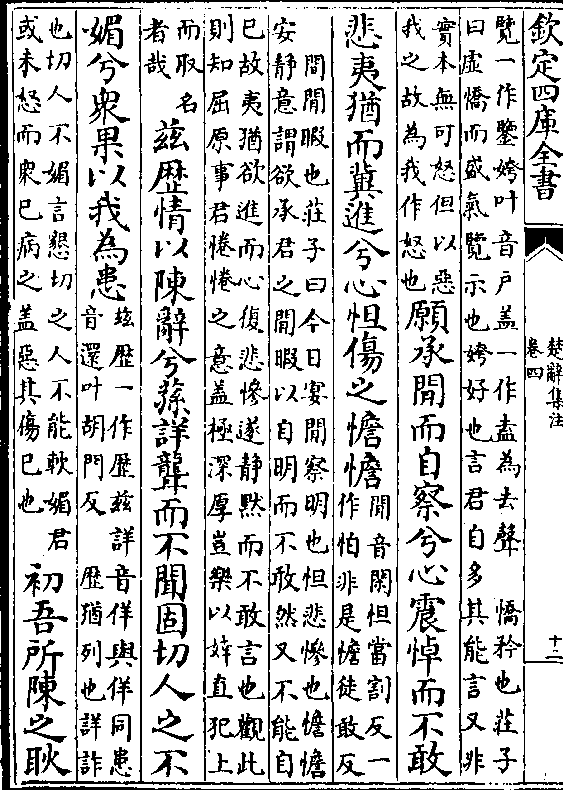 欽定四庫全書
楚辭集注
卷四
十二
覽一作鑒姱叶音户盖一作盍為去聲　憍矜也莊子
曰虚憍而盛氣覽示也姱好也言君自多其能言又非
實本無可怒但以惡
我之故為我作怒也
願承閒而自察兮心震悼而不敢
悲夷猶而冀進兮心怛傷之憺憺
閒音閑怛當割反一
作怕非是憺徒敢反
閒閒暇也莊子曰今日宴閒察明也怛悲慘也憺憺
安静意謂欲承君之閒暇以自明而不敢然又不能自
已故夷猶欲進而心復悲慘遂静默而不敢言也觀此
則知屈原事君惓惓之意盖極深厚豈樂以婞直犯上
而取名
者哉
兹歴情以陳辭兮蓀詳聾而不聞固切人之不
媚兮衆果以我為患
兹歴一作歴兹詳音佯與佯同患
音還叶胡門反　歴猶列也詳詐
也切人不媚言懇切之人不能軟媚君
或未怒而衆已病之盖惡其傷已也
初吾所陳之耿